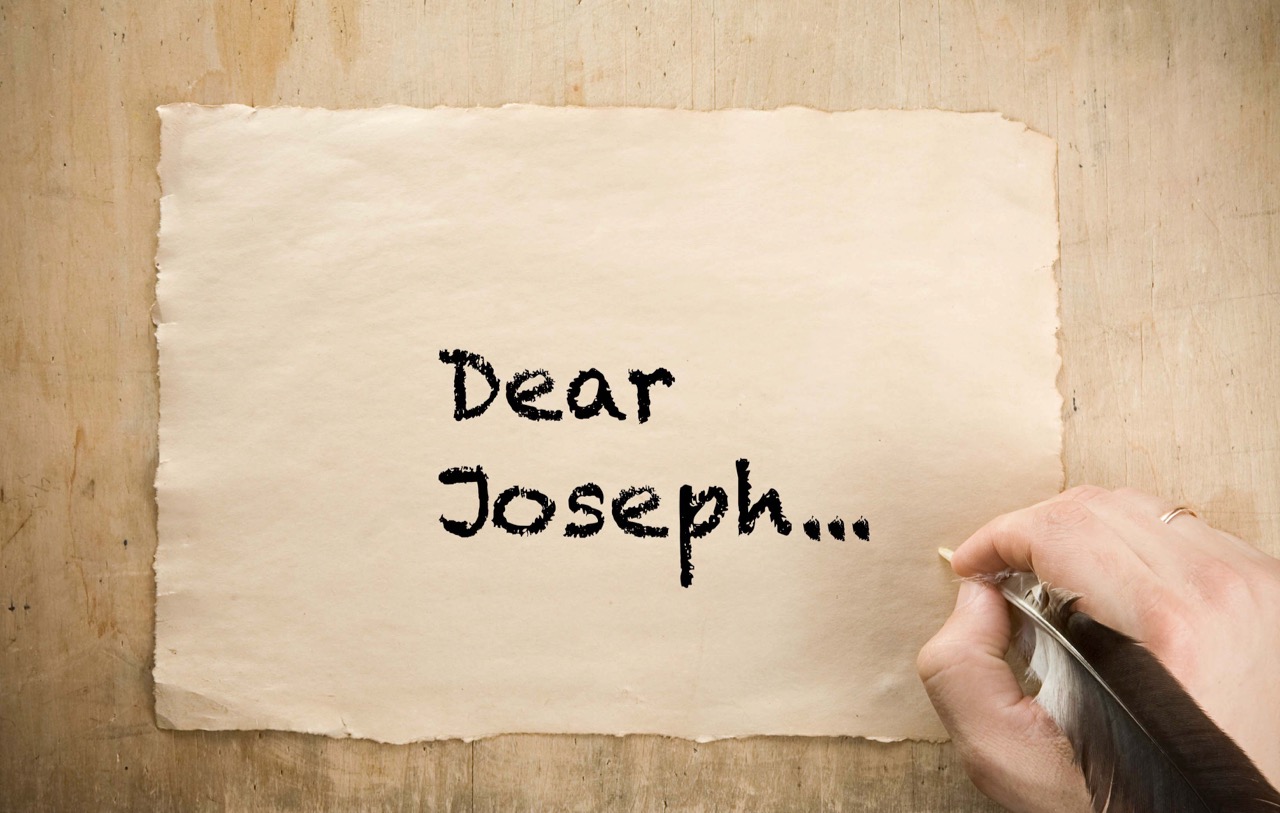 Dear
Joseph...